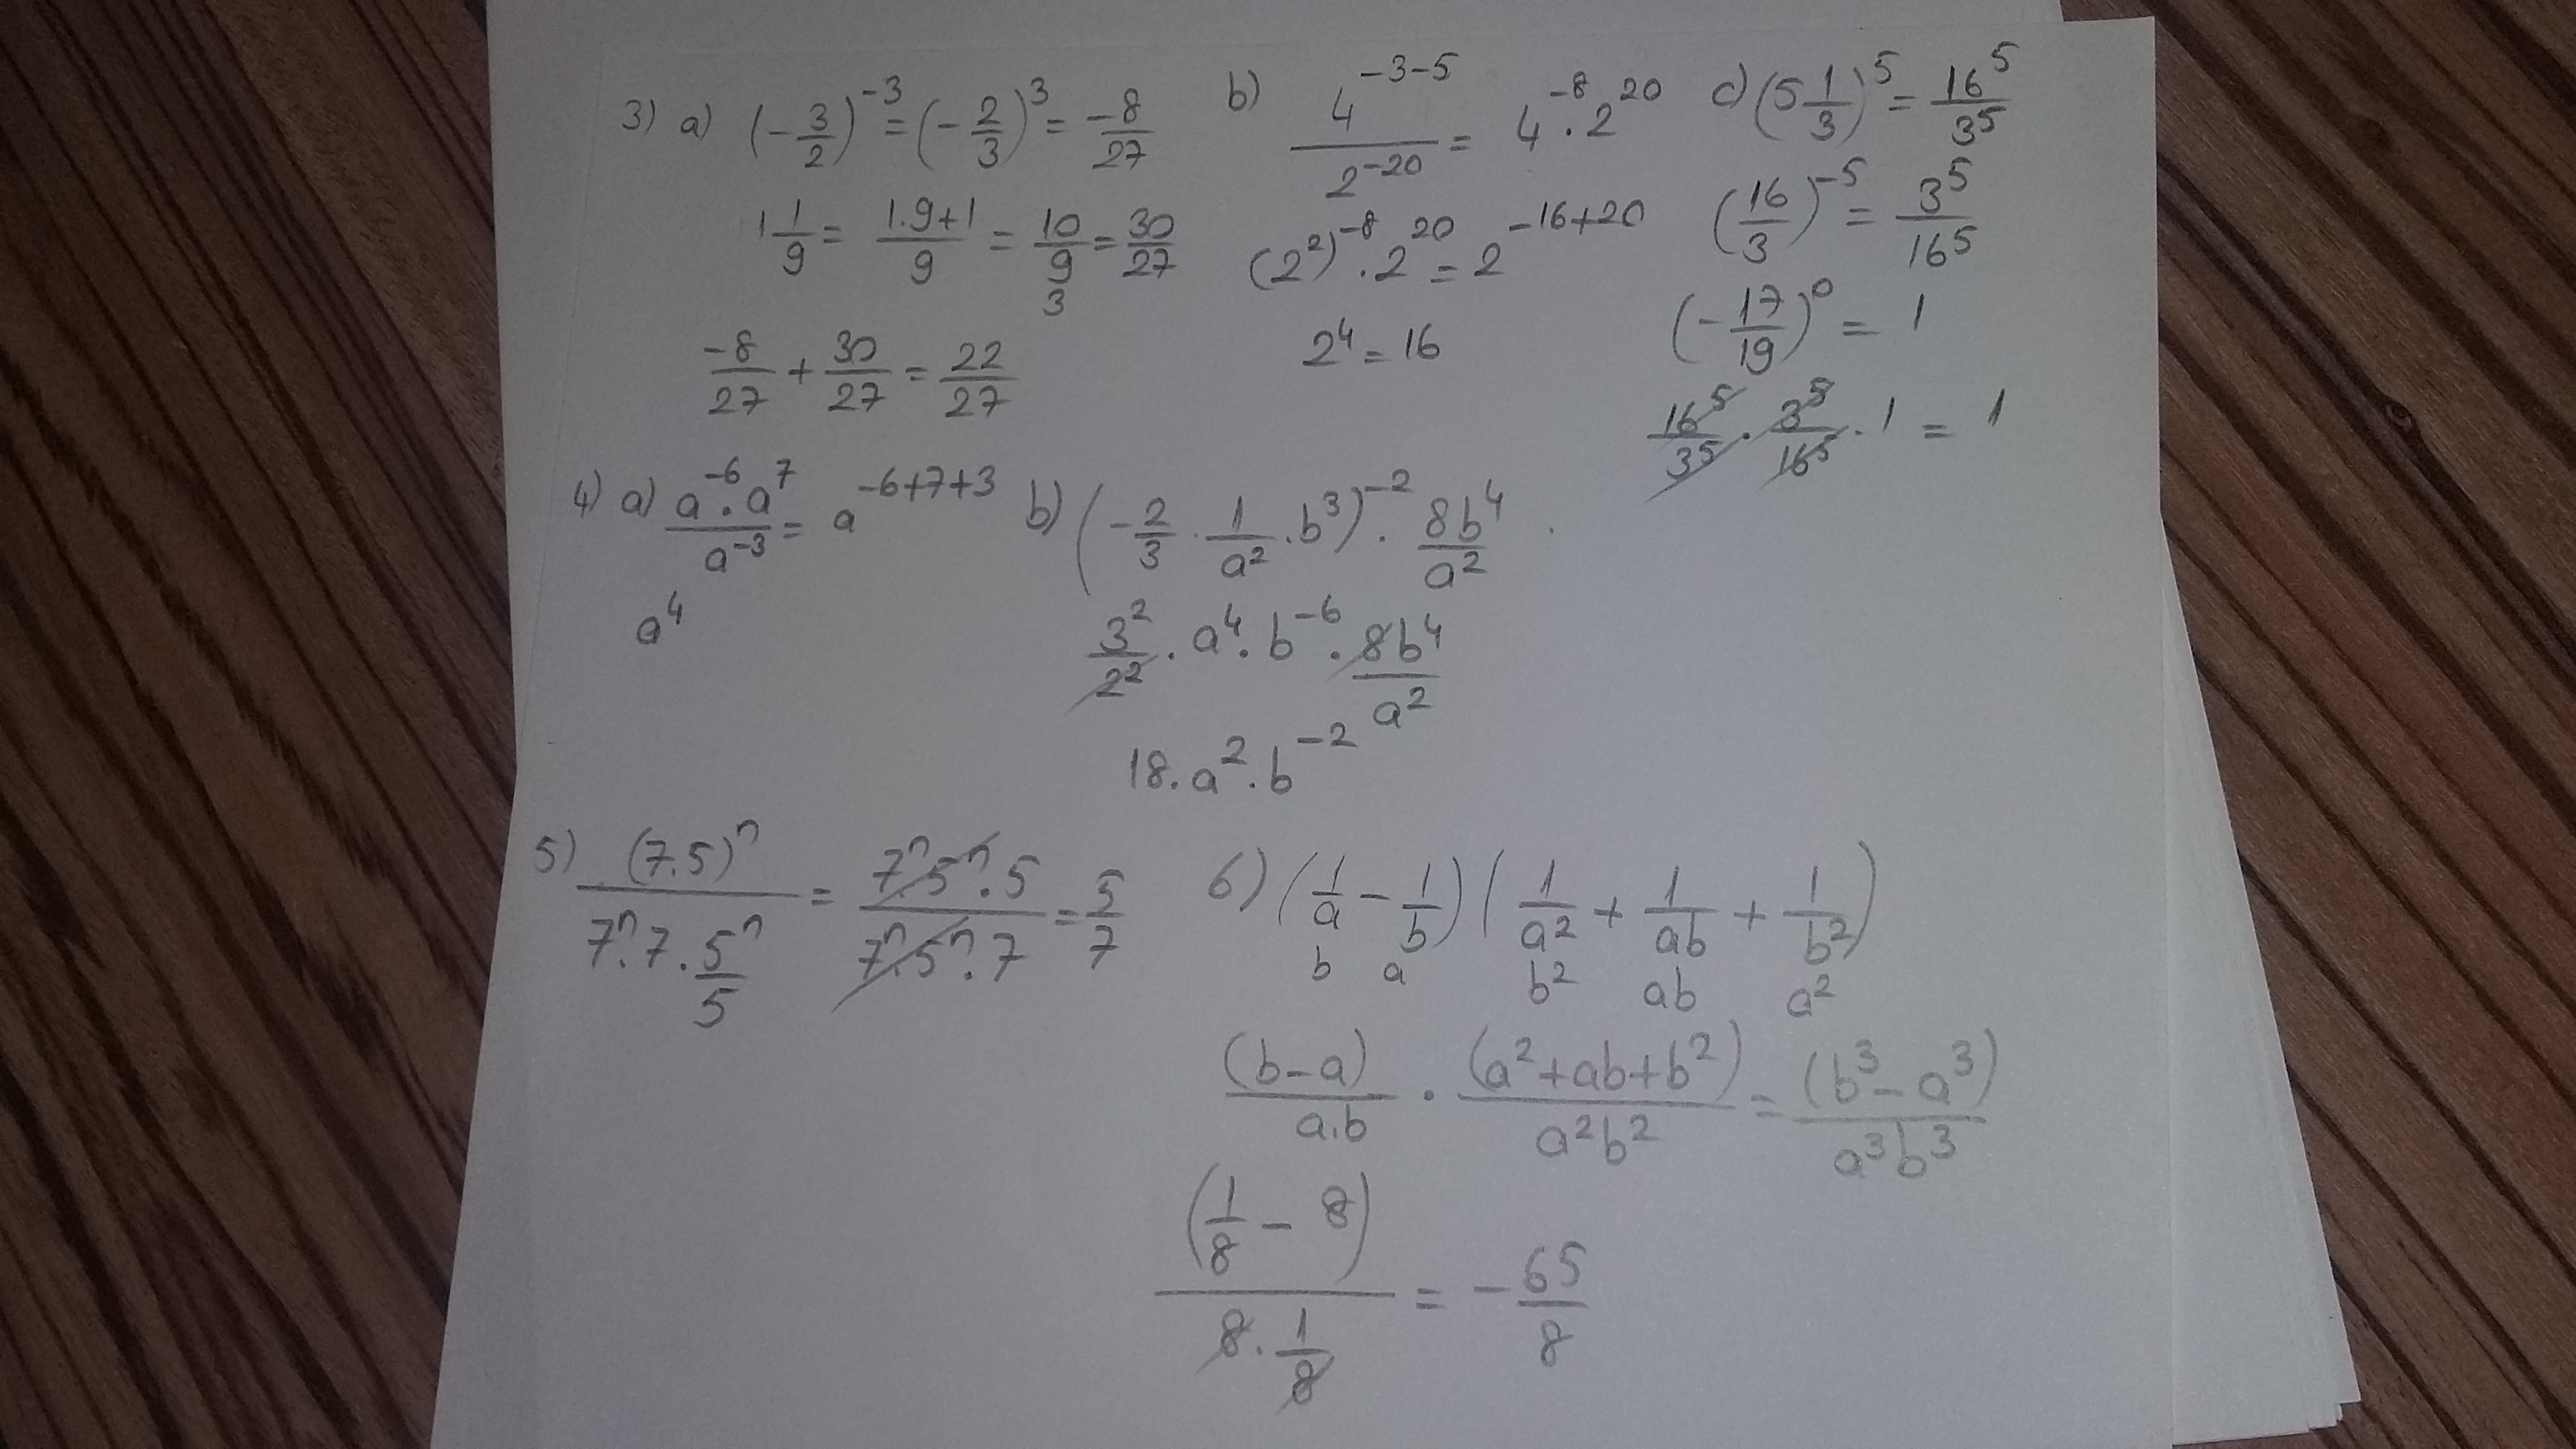 3) a) (-3/2)^-3 = (-2/3)^3 = -8/27
1 1/9 = 1.9+1/9 = 10/9 = 30/27
3
-8/27 + 30/27 = 22/27
b) 4^-3-5/2^-20 = 4^-8 . 2^20
(2^2)^-8 . 2^20 = 2^-16+20
2^4 = 16
c) (5 1/3)^5 = 16^5/3^5
(16/3)^-5 = 3^5/16^5
(-17/19)^0 = 1
16^5/3^5 . 3^5/16^5 . 1 = 1
4) a) a^-6 . a^7/a^-3 = a^-6+7+3
a^4
b) (-2/3 . 1/a^2 . b^3)^-2 . 8b^4/a^2
3^2/2^2 . a^4 . b^-6 . 8b^4/a^2
18 . a^2 . b^-2
5) (7.5)^n/7^n . 7 . 5^n/5 = 7^n . 5^n . 5/7^n . 5^n . 7 = 5/7
6) (1/a - 1/b) (1/a^2 + 1/ab + 1/b^2)
b a b^2 ab a^2
(b-a)/a.b . (a^2+ab+b^2)/a^2b^2 = (b^3-a^3)/a^3b^3
(1/8 - 8)/8 . 1/8 = -65/8